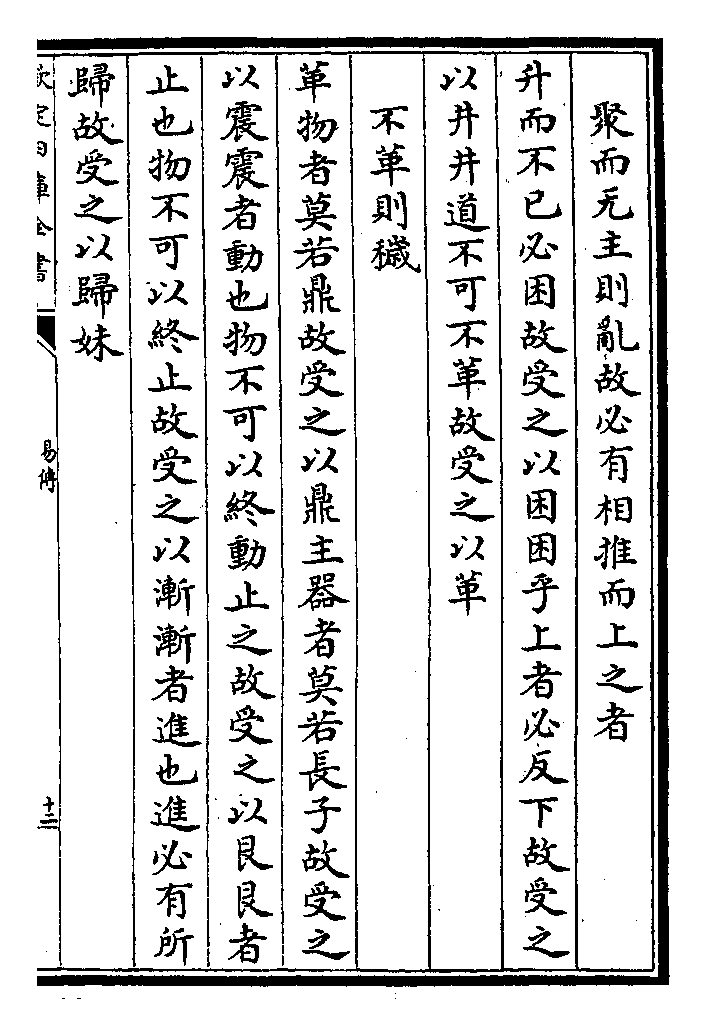 聚而无主則亂故必有相推而上之者
升而不已必困故受之以困困乎上者必反下故受之
以井井道不可不革故受之以革
不革則穢
革物者莫若鼎故受之以鼎主器者莫若長子故受之
以震震者動也物不可以終動止之故受之以艮艮者
止也物不可以終止故受之以漸漸者進也進必有所
歸故受之以歸妹
欽定四庫全書
易傳
十二